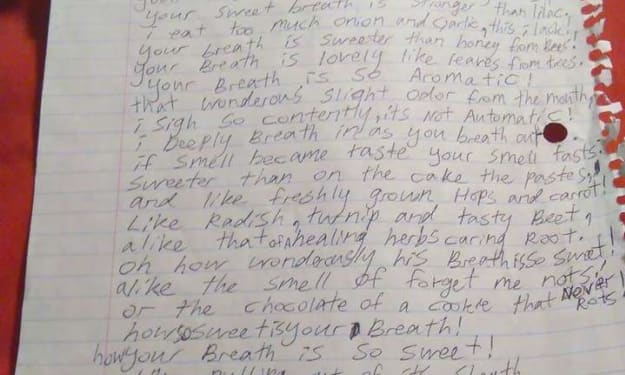 your sweet breath is stronger than lilac,
i eat too much onion and garlic, this i lack!
your breath is sweeter than honey from Bees!
your Breath is lovely like leaves from trees.
your Breath is so Aromatic!
that wonderous slight odor from the mouth,
i sigh so contently, its Not Automatic!
i Deeply Breath in as you breath out .
if smell became taste your smell tasts
sweeter than on the cake the pastes,
and like freshly grown Hops and carrot!
Like Radish, turnip and tasty Beet,
alike that of a healing herbs caring Root.
oh how wonderously his Breath is so sweet!
alike the smell of forget me nots!
or the chocolate of a cookie that Never Rots!
how so sweet is your Breath!
how your Breath is so sweet!